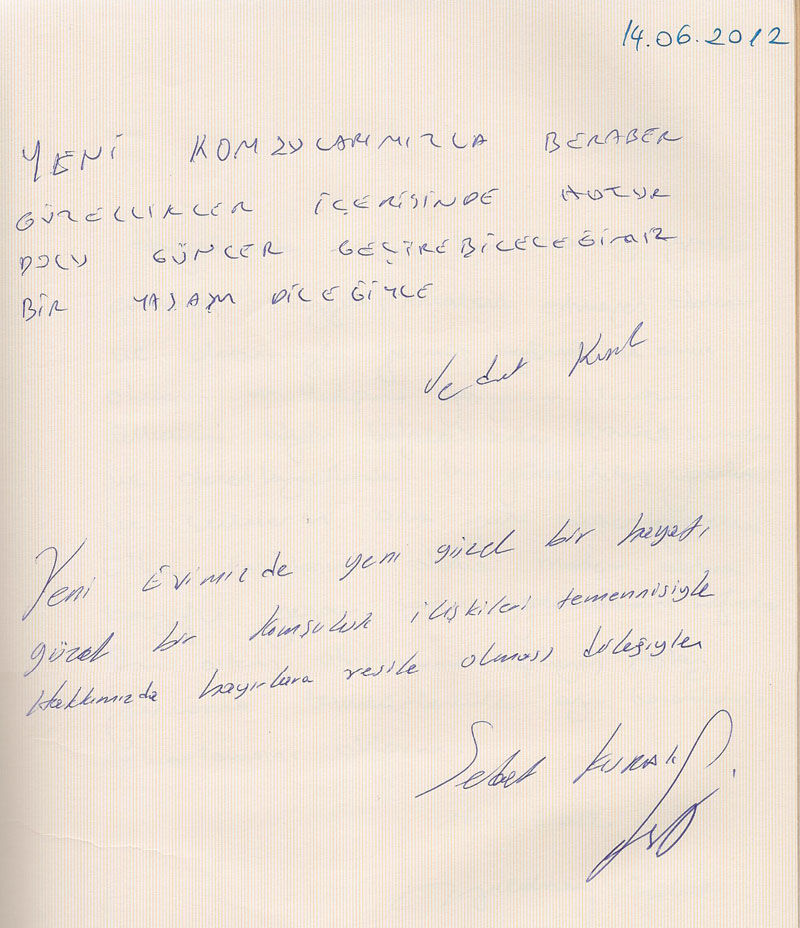 14.06.2012
YENİ KOMŞULARIMIZLA BERABER
GÜZELLİKLER İÇERİSİNDE HUZUR
DOLU GÜNLER GEÇİREBİLECEĞİMİZ
BİR YAŞAM DİLEĞİYLE
Vedat
Yeni Evimizde yeni güzel bir hayatı,
güzel bir komşuluk ilişkileri temennisiyle
Hakkımızda hayırlara vesile olması dileğiyle